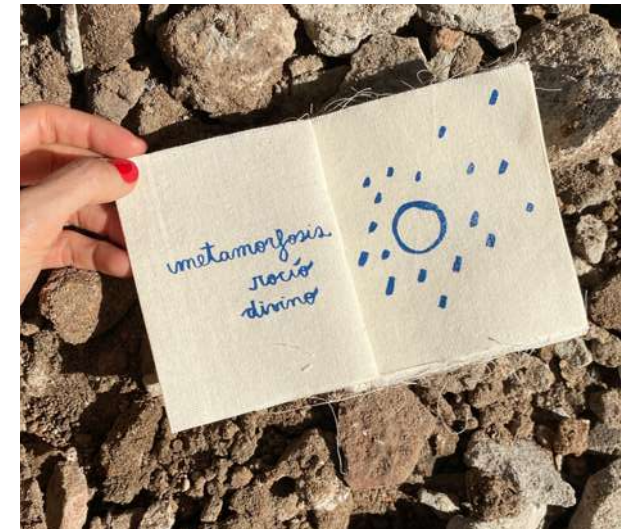 metamorfosis
rocío
divino